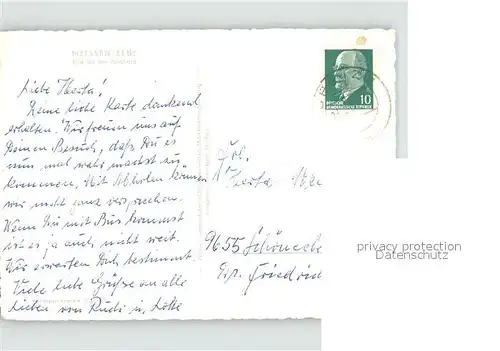 MEISSEN/ELBE
Liebe Herta!
Deine liebe Karte dankend
erhalten. Wir freuen uns auf
Deinen Besuch, daß Du es
nun mal wahr machst zu
kommen. Mit Abholen können
wir nicht ganz versprechen.
Wenn Du mit Bus kommst
ist es ja auch nicht weit.
Wir erwarten Dich bestimmt.
Viele liebe Grüße an alle
Lieben von Rudi u. Lotte
10
DEUTSCHE
DEMOKRATISCHE REPUBLIK
Frl.
Herta
9655 Schöneche
Friedrich
privacy protection
Datenschutz